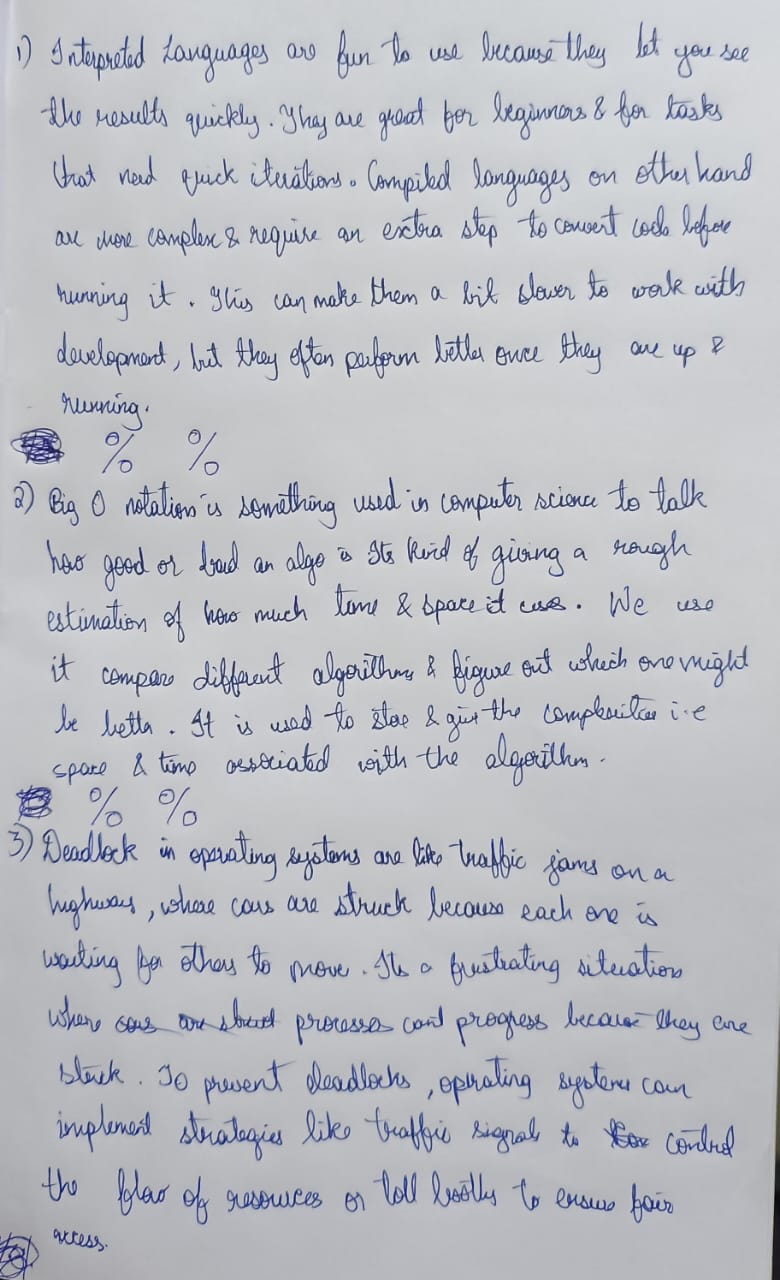 1) Interpreted Languages are fun to use because they let you see
the results quickly. They are great for beginners & for tasks
that need quick iterations. Compiled languages on other hand
are more complex & require an extra step to convert code before
running it. This can make them a bit slower to work with
development, but they often perform better once they are up &
running.
% %
2) Big O notation is something used in computer science to talk
how good or bad an algo is Its kind of giving a rough
estimation of how much time & space it uses. We use
it compare different algorithms & figure out which one might
be better. It is used to & give the complexities i.e
space & time associated with the algorithm.
% %
3) Deadlock in operating systems are like traffic jams on a
highway, where cars are struck because each one is
waiting for others to move. Its a frustrating situation
where cars are struct processes cant progress because they are
stuck. To prevent deadlocks, operating systems can
implement strategies like traffic signals to control
the flow of resources or toll booths to ensure fair
access.